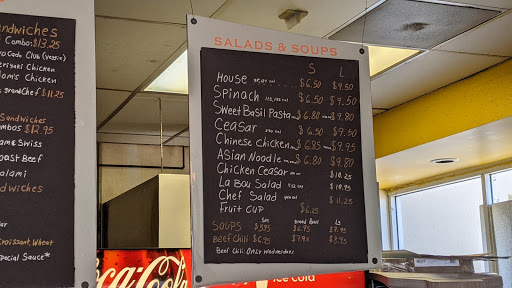 andwiches
Combo: $13.25
Club (veggie)
eriyaki Chicken
om's Chicken
Chef $11.25
Sandwiches
ombos $12.95
am & Swiss
oast Beef
alami
dwiches
roissant, Wheat
pecial Sauce*
SALADS & SOUPS
S L
House $6.50 $9.50
Spinach $6.50 $9.50
Sweet Basil Pasta $6.80 $9.80
Ceasar $6.50 $9.50
Chinese Chicken $6.95 $9.95
Asian Noodle $6.80 $9.80
Chicken Ceasar $10.25
La Bou Salad $10.95
Chef Salad $10.25
Fruit Cup $6.25
Sm Bread Bowl Lg
Soups $5.95 $6.95 $7.95
Beef Chili $6.95 $7.95 $8.95
Beef Chili: Only Wednesday
Coca-Cola
ice cold